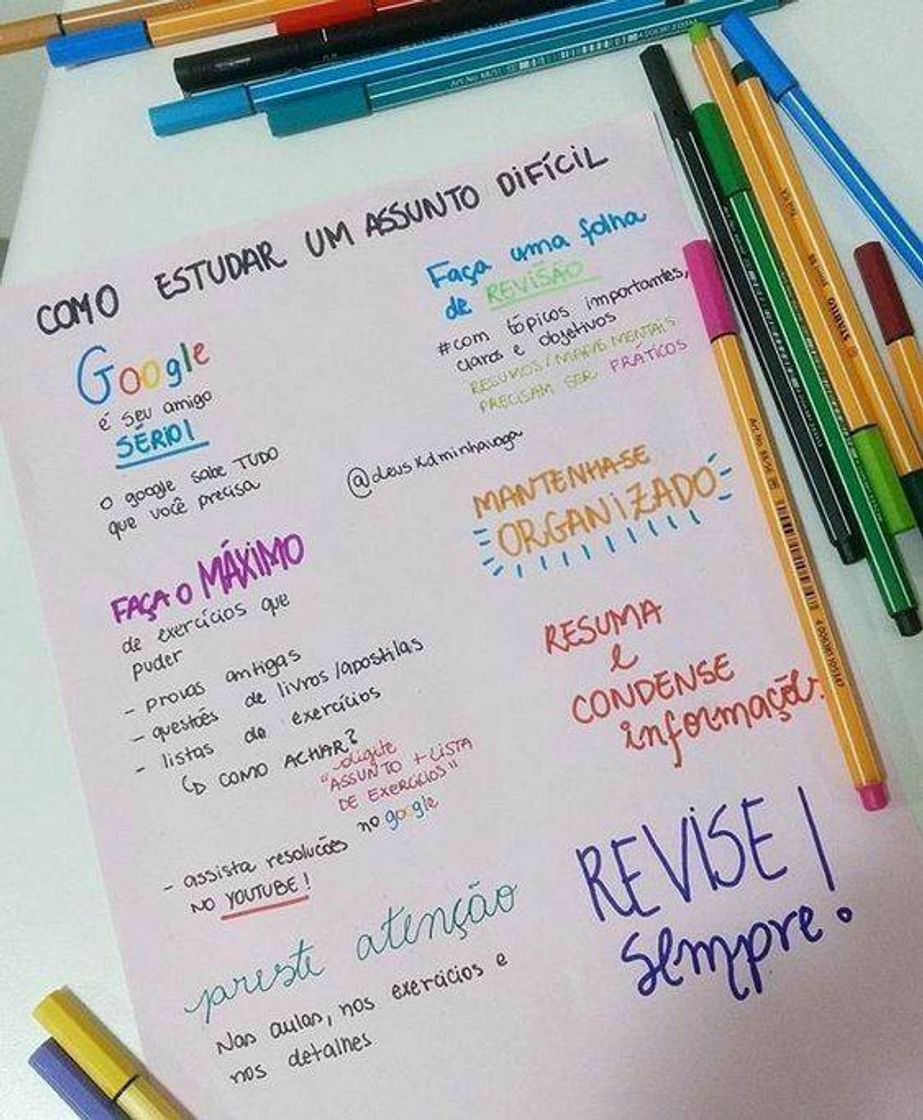 COMO ESTUDAR UM ASSUNTO DIFÍCIL
Google
é seu amigo
SÉRIO!
O google sabe TUDO
que você precisa
Faça uma folha
de REVISÃO
#com tópicos importantes,
claros e objetivos
RESUMOS/MAPAS MENTAIS
PRECISAM SER PRÁTICOS
@deusxdminhavaga
MANTENHA-SE
ORGANIZADO
FAÇA O MÁXIMO
de exercícios que
puder
- provas antigas
- questões de livros/apostilas
- listas de exercícios
COMO ACHAR?
digite
"ASSUNTO + LISTA
DE EXERCÍCIOS"
no google
- assista resoluções
NO YOUTUBE!
RESUMA
e
CONDENSE
informações
REVISE!
sempre.
preste atenção
Nas aulas, nos exercícios e
nos detalhes
STABILO